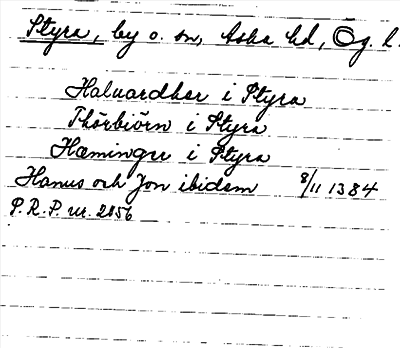 Styra, by o. sn, Aska hd, Ög. l.
Haluardher i Styra
Thörbiörn i Styra
Hæminger i Styra
Hanus och Jon ibidem 8/11 1384
P.R.P. nr. 2056